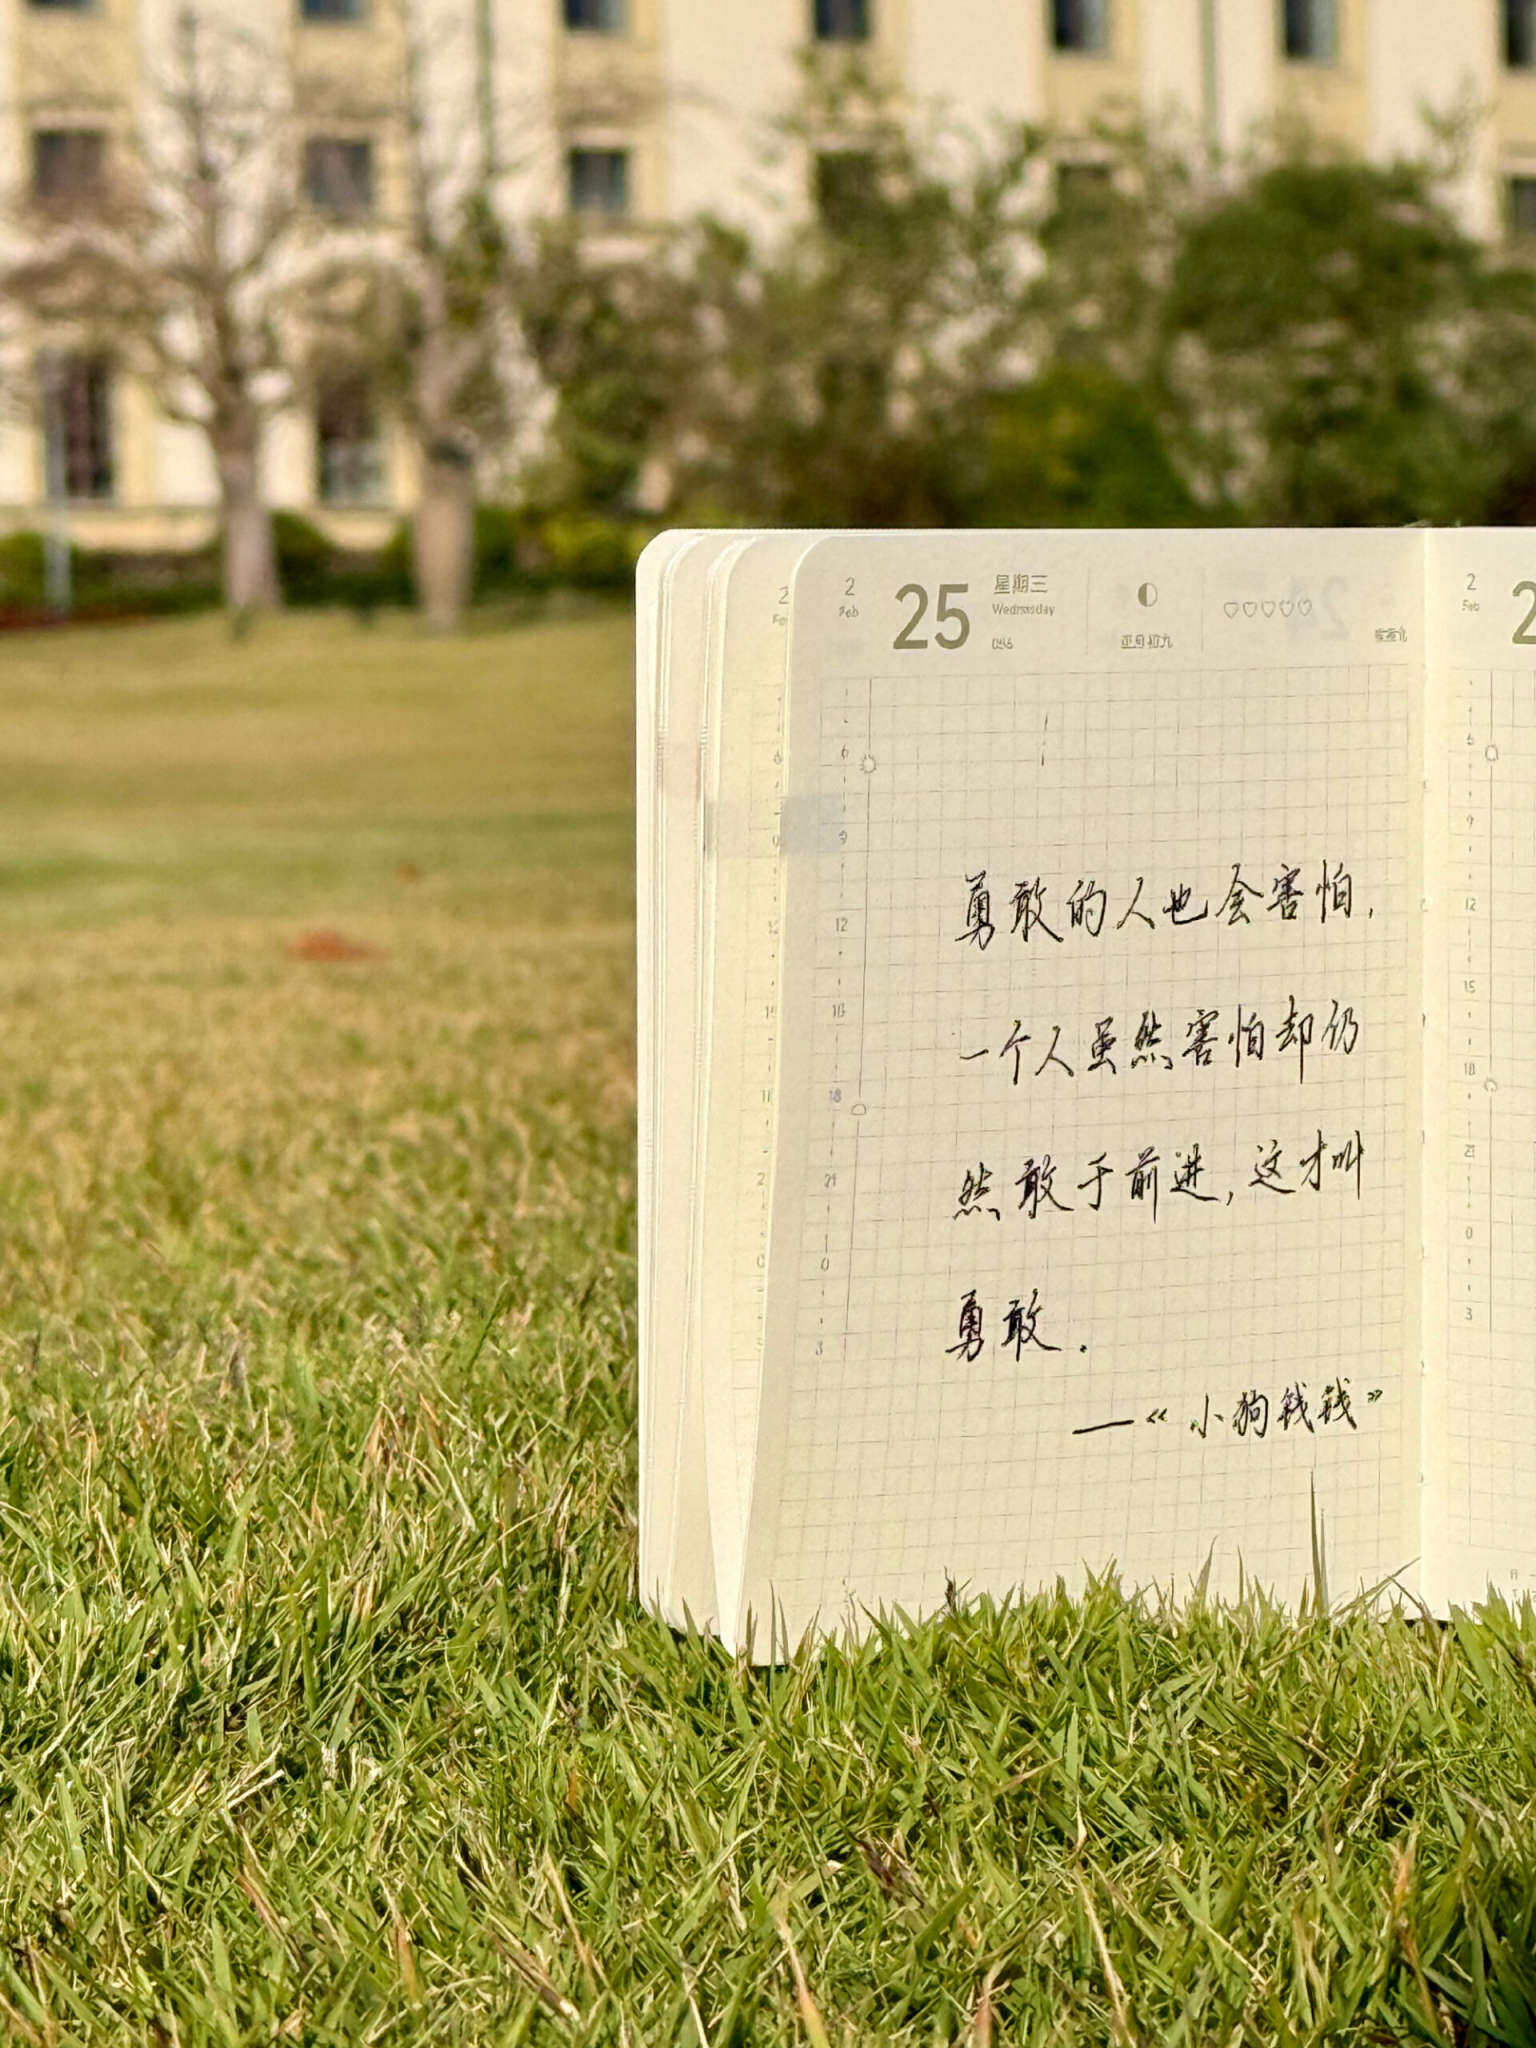 2
Feb
25
星期三
Wednesday
056
正月初九
勇敢的人也会害怕,
一个人虽然害怕却仍
然敢于前进,这才叫
勇敢.
—《小狗钱钱》
6
9
12
15
18
21
0
3
2
Feb
2
6
9
12
15
18
21
0
3